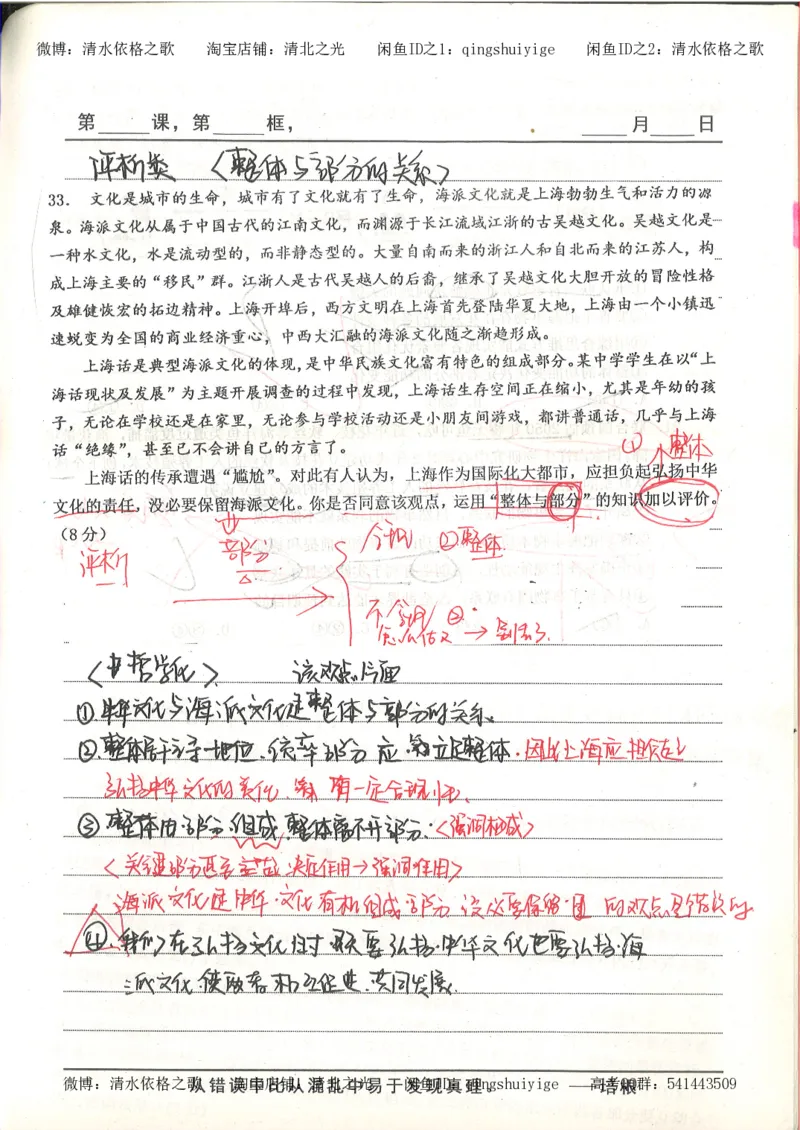 微博：清水依格之歌 淘宝店铺：清北之光 闲鱼ID之1：qingshuiyige 闲鱼ID之2：清水依格之歌
第 课，第 框， 月 日
评析类 〈整体与部分的关系〉
33. 文化是城市的生命，城市有了文化就有了生命，海派文化就是上海勃勃生气和活力的源
泉。海派文化从属于中国古代的江南文化，而渊源于长江流域江浙的古吴越文化。吴越文化是
一种水文化，水是流动型的，而非静态型的。大量自南而来的浙江人和自北而来的江苏人，构
成上海主要的“移民”群。江浙人是古代吴越人的后裔，继承了吴越文化大胆开放的冒险性格
及雄健恢宏的拓边精神。上海开埠后，西方文明在上海首先登陆华夏大地，上海由一个小镇迅
速蜕变为全国的商业经济重心，中西大汇融的海派文化随之渐趋形成。
上海话是典型海派文化的体现，是中华民族文化富有特色的组成部分。某中学学生在以“上
海话现状及发展”为主题开展调查的过程中发现，上海话生存空间正在缩小，尤其是年幼的孩
子，无论在学校还是在家里，无论参与学校活动还是小朋友间游戏，都讲普通话，几乎与上海
话“绝缘”，甚至已不会讲自己的方言了。
① 整体
上海话的传承遭遇“尴尬”。对此有人认为，上海作为国际化大都市，应担负起弘扬中华
文化的责任，没必要保留海派文化。你是否同意该观点，运用“整体与部分”的知识加以评价。
（8分）
评析 部分 合理 ②整体
不合理 ②
怎么估又 → 割裂了
〈 哲学化〉 该观点片面
①中华文化与海派文化是整体与部分的关系。
②整体居于主导地位，统率部分，应树立起整体，因此上海应担负起
弘扬中华文化的责任，有一定合理性。
③整体由部分组成，整体离不开部分：〈强调构成〉
〈关键部分甚至起决定作用→强调作用〉
海派文化是中华文化有机组成部分，没必要保留 的观点是错误的
④我们在弘扬文化时，既要弘扬中华文化也要弘扬海
派文化，使两者相互促进、共同发展。
微博：清水依格之歌 淘宝店铺：清北之光 闲鱼ID之1：qingshuiyige 高考QQ群：541443509
从错误中比从混乱中易于发现真理。——培根